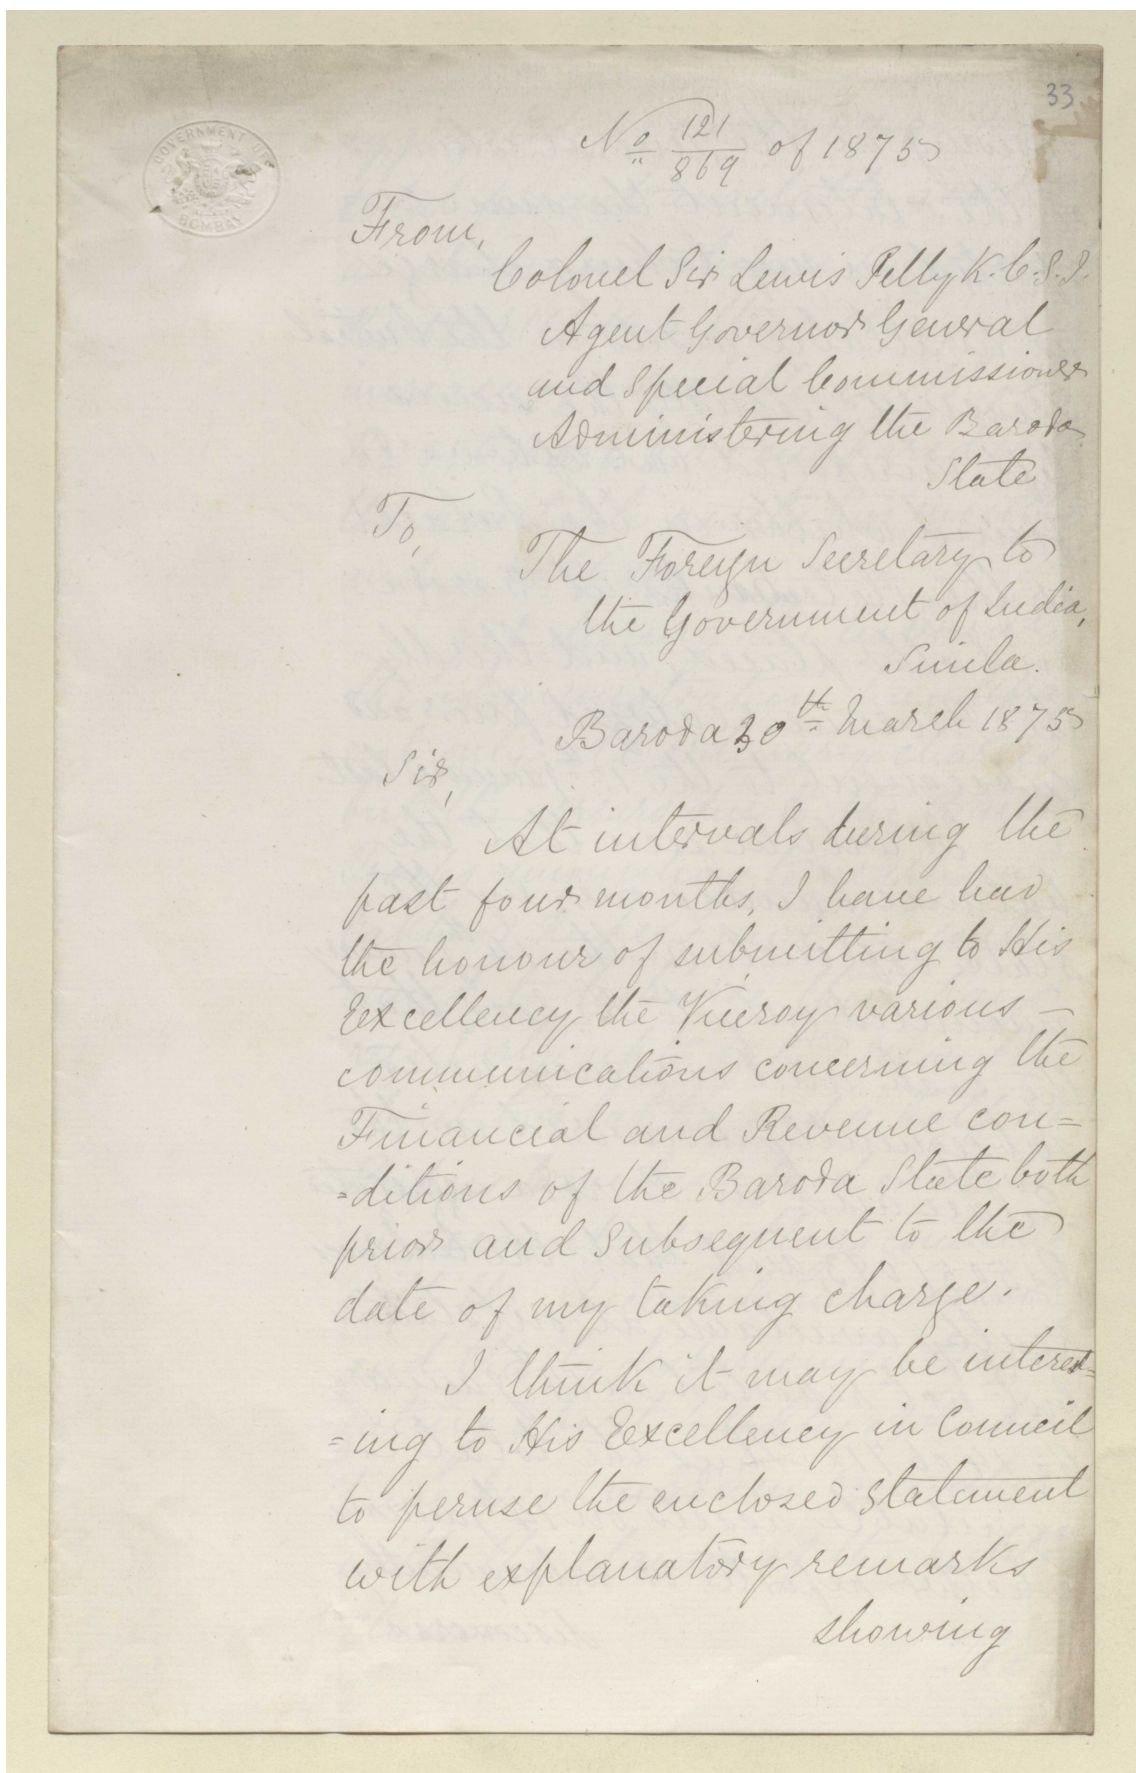 33
GOVERNMENT OF
BOMBAY
No 121/869 of 1875
From,
Colonel Sir Lewis Pelly K.C.S.I.
Agent Governor General
and Special Commissioner
Administering the Baroda
State
To,
The Foreign Secretary to
the Government of India,
Simla.
Baroda 30th March 1875
Sir,
At intervals during the
past four months, I have had
the honour of submitting to His
Excellency the Viceroy various –
communications concerning the
Financial and Revenue con=
=ditions of the Baroda State both
prior and subsequent to the
date of my taking charge.
I think it may be interest=
=ing to His Excellency in Council
to peruse the enclosed statement
with explanatory remarks
showing